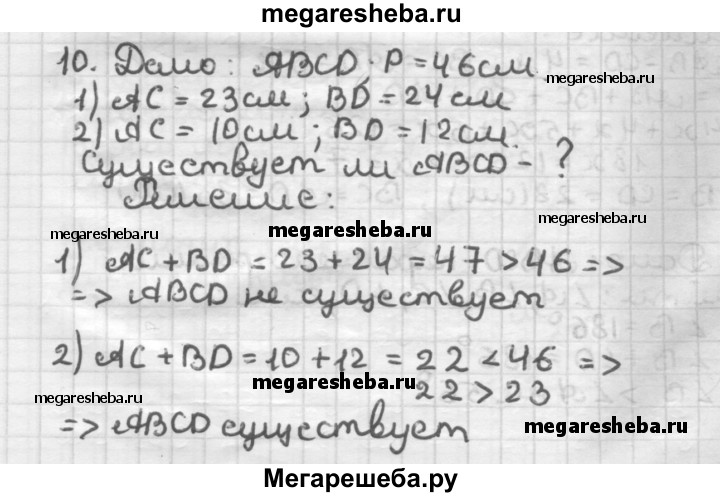 megaresheba.ru
10. Дано: ABCD. P = 46 см
megaresheba.ru
1) AC = 23 см ; BD = 24 см
megaresheba.ru
2) AC = 10 см ; BD = 12 см.
Существует ли ABCD - ?
Решение:
megaresheba.ru
megaresheba.ru
megaresheba.ru
1) AC + BD = 23 + 24 = 47 > 46 =>
=> ABCD не существует
2) AC + BD = 10 + 12 = 22 < 46 =>
megaresheba.ru
22 > 23
megaresheba.ru
=> ABCD существует
megaresheba.ru
Мегарешеба.ру